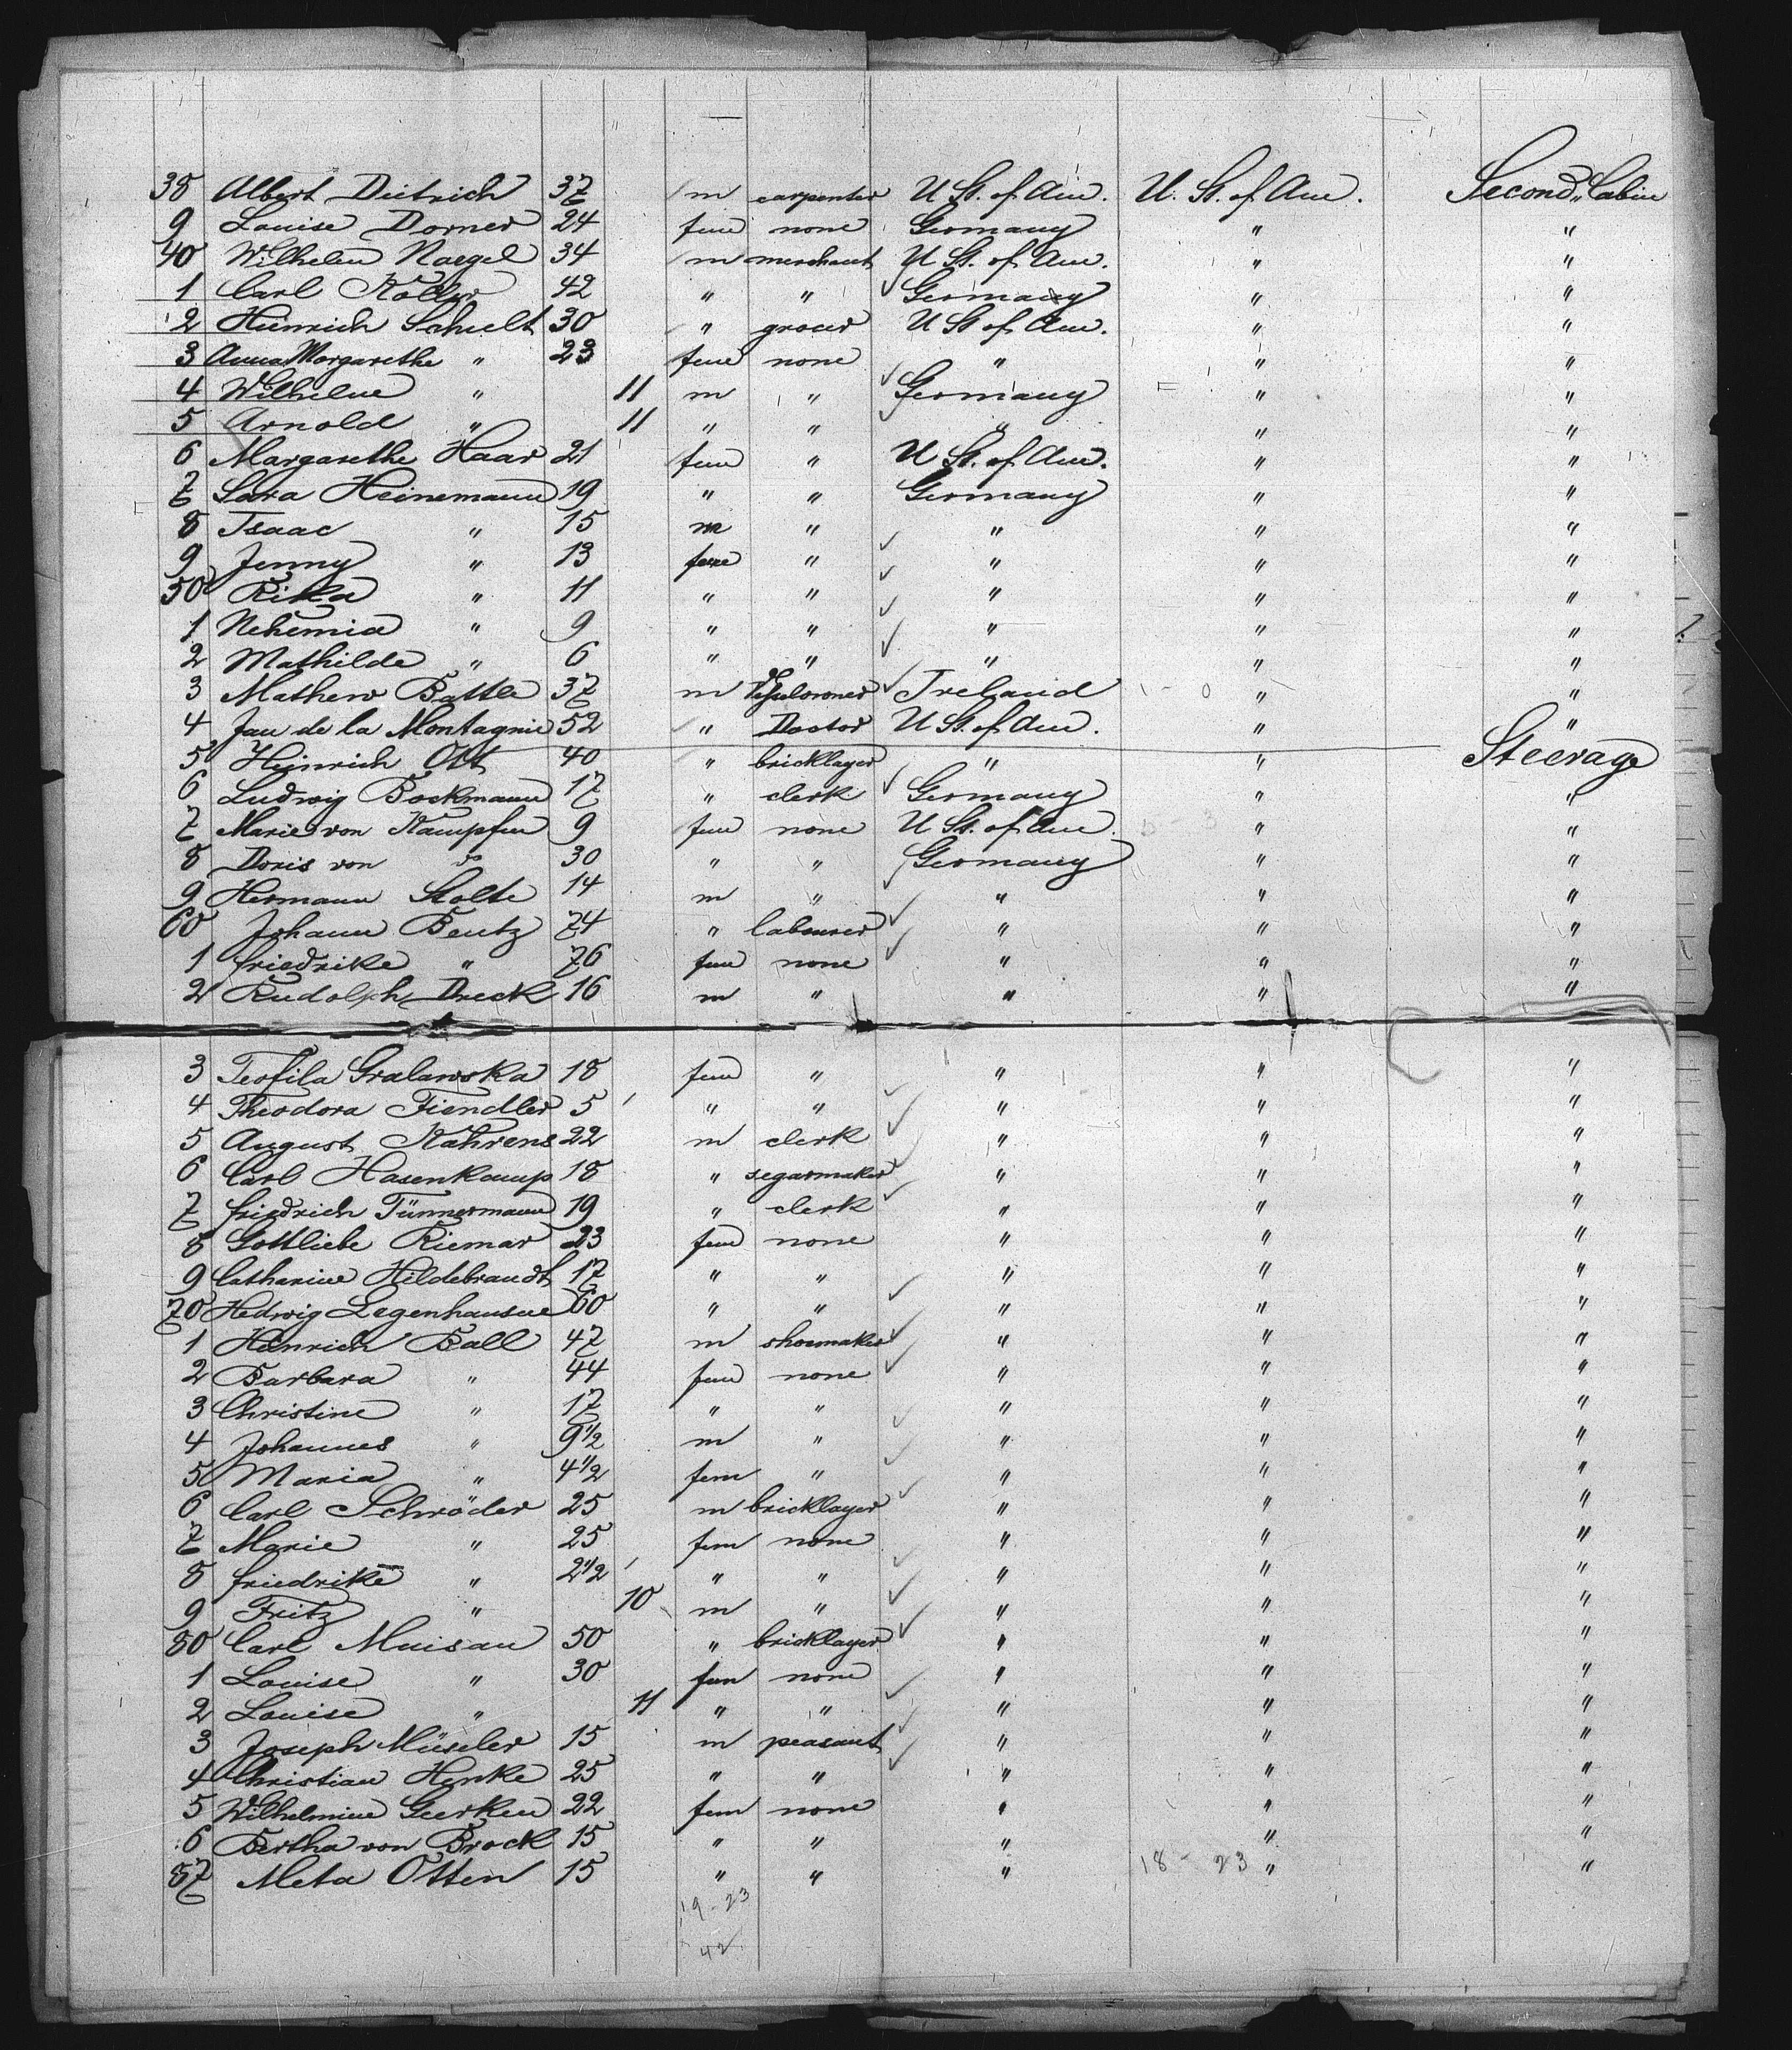 38 Albert Dietrich 37 m carpenter U St. of Am. U. St. of Am. Second Cabin
9 Louise Dorner 24 fem none Germany " "
40 Wilhelm Naegel 34 m merchant U St. of Am. " "
1 Carl Köller 42 " " Germany " "
2 Heinrich Schult 30 " grocer U St of Am. " "
3 Anna Margarethe " 23 fem none " " "
4 Wilhelm " 11 m " Germany " "
5 Arnold " 11 " " " " "
6 Margarethe Haar 21 fem " U St. of Am. " "
7 Sara Heinemann 19 " " Germany " "
8 Isaac " 15 m " " " "
9 Jenny " 13 fem " " " "
50 Rika " 11 " " " " "
1 Nehemia " 9 " " " " "
2 Mathilde " 6 " " " " "
3 Mathew Battle 37 m Ireland " "
4 Jan de la Montagnie 52 " Doctor U St. of Am. " "
5 Heinrich Ott 40 " bricklayer " " Steerage
6 Ludwig Bockmann 17 " clerk Germany " "
7 Marie von Kampfen 9 fem none U St. of Am. " "
8 Doris von " 30 " " Germany " "
9 Hermann Stolte 14 m " " " "
60 Johann Bentz 74 " labourer " " "
1 Friedrike " 76 fem none " " "
2 Rudolph Dreck 16 m " " " "
3 Teofila Gralawska 18 fem " " " "
4 Theodora Fiendler 5 " " " " "
5 August Kahrens 22 m clerk " " "
6 Carl Hasenkamp 18 " segarmaker " " "
7 Friedrich Tünnermann 19 " clerk " " "
8 Gottliebe Riemar 23 fem none " " "
9 Catharine Hildebrandt 17 " " " " "
70 Hedwig Legenhausen 60 " " " " "
1 Heinrich Ball 47 m shoemaker " " "
2 Barbara " 44 fem none " " "
3 Christine " 17 " " " " "
4 Johannes " 9 1/2 m " " " "
5 Maria " 4 1/2 fem " " " "
6 Carl Schröder 25 m bricklayer " " "
7 Marie " 25 fem none " " "
8 Friedrike " 2 1/2 " " " " "
9 Fritz " 10 m " " " "
80 Carl Muisau 50 " bricklayer " " "
1 Louise " 30 fem none " " "
2 Louise " 11 " " " " "
3 Joseph Müseler 15 m peasant " " "
4 Christian Henke 25 " " " " "
5 Wilhelmine Geerken 22 fem none " " "
6 Bertha von Brock 15 " " " " "
87 Meta Otten 15 " " " 18 - 23 " "
19 - 23
42